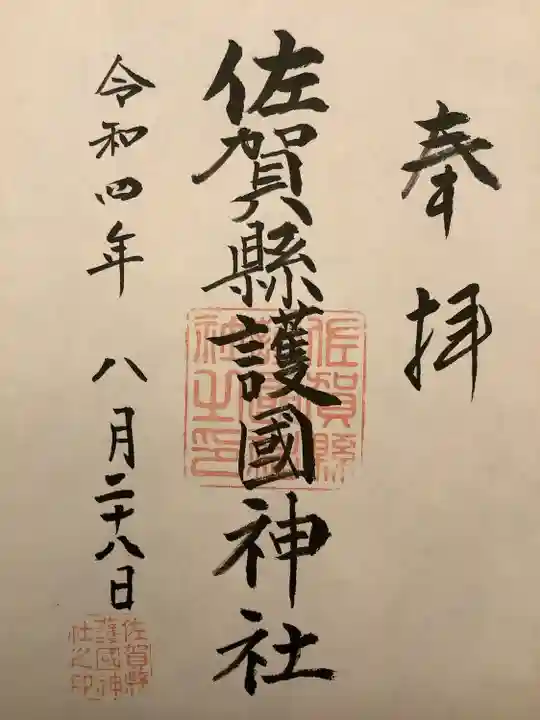 奉拝
佐賀縣護國神社
佐賀縣護國神社之印
令和四年 八月二十八日
佐賀縣護國神社之印